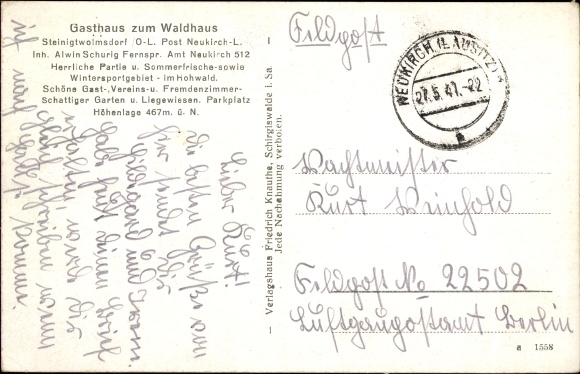 Gasthaus zum Waldhaus
Steinigtwolmsdorf /O-L. Post Neukirch-L.
Inh. Alwin Schurig Fernspr. Amt Neukirch 512
Herrliche Partie u. Sommerfrische-sowie
Wintersportgebiet - im Hohwald.
Schöne Gast-, Vereins- u. Fremdenzimmer-
Schattiger Garten u. Liegewiesen. Parkplatz
Höhenlage 467m. ü. N.
Lieber Kurt!
Die besten Grüße von
hier sendet Dir
Hildegard und
Habe heute deinen Brief
erhalten, werde Dir
gleich schreiben wenn
ich nach komme.
Verlagshaus Friedrich Knauthe, Schirgiswalde i. Sa.
Jede Nachahmung verboten.
Feldpost
NEUKIRCH (LAUSITZ)
27.5.41.-22
a
Wachtmeister
Kurt Weinhold
Feldpost No 22502
Luftgaupostamt Berlin
a 1558